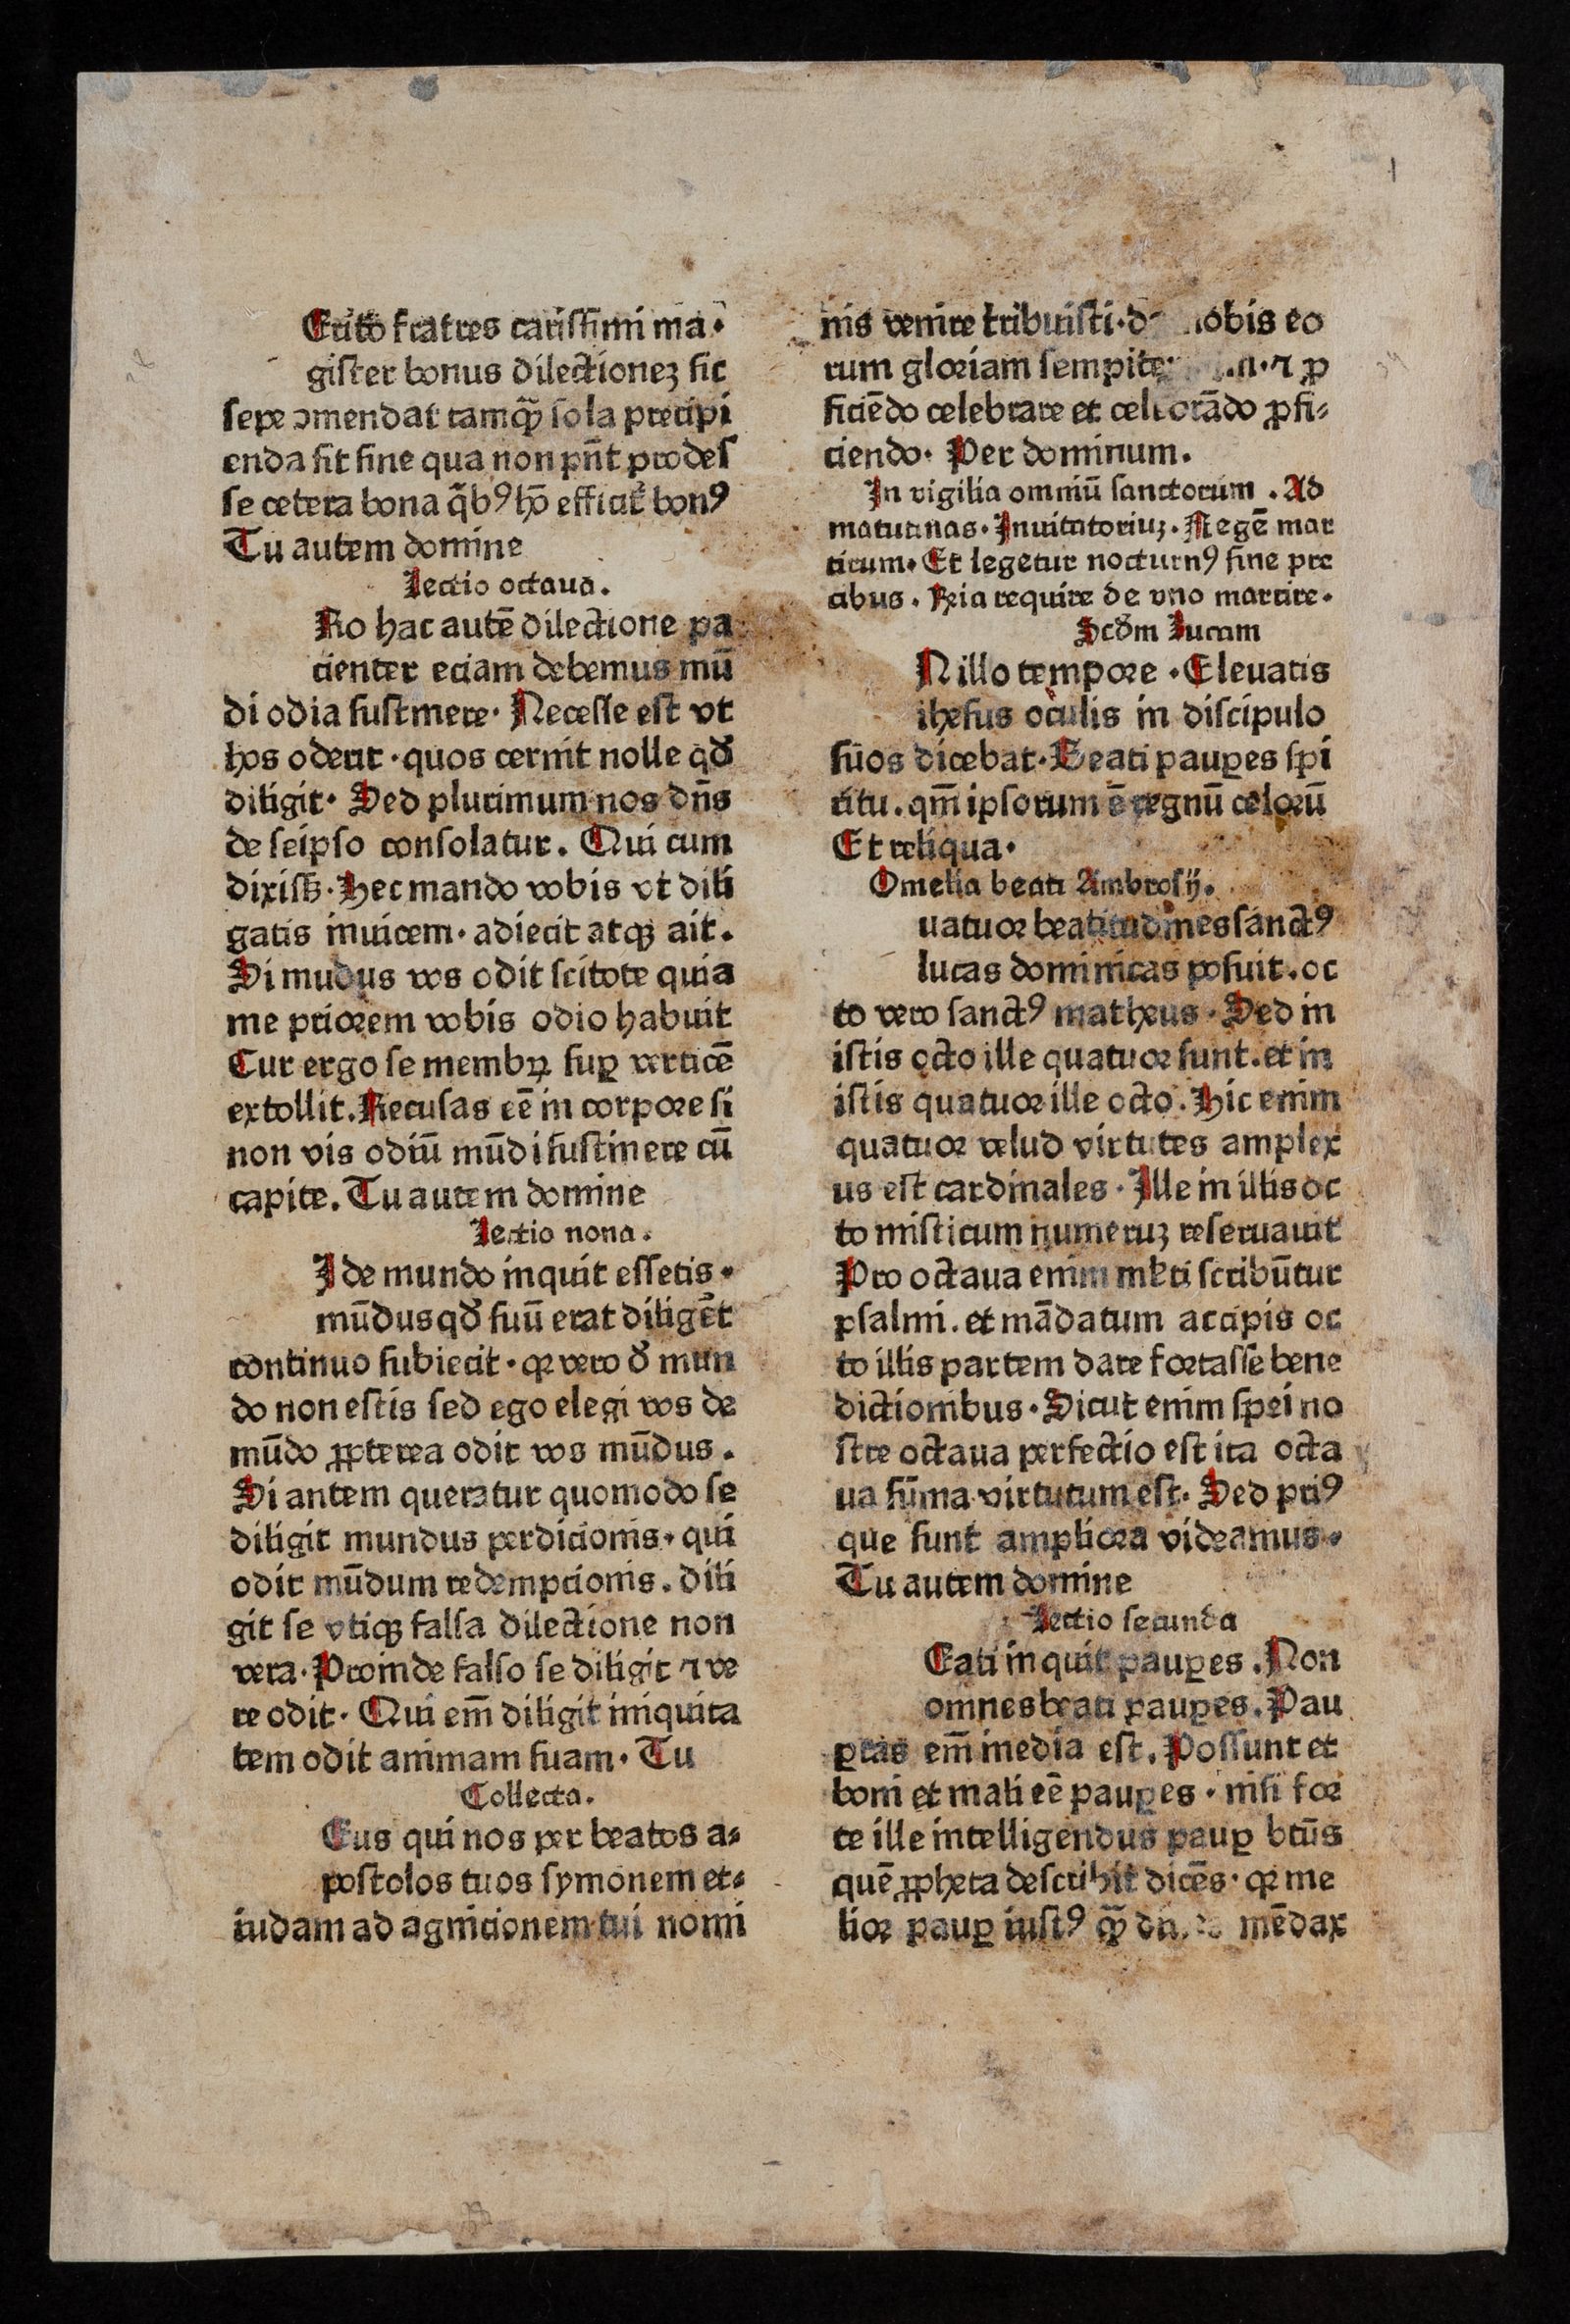 Erito fratres carissimi ma·
gister bonus dilectionez sic
sepe ↄmendat tamqᷓ sola precipi
enda sit sine qua non pn̄t prodes
se cetera bona q̄bꝰ hō efficit̉ bonꝰ
Tu autem domine
Lectio octaua.
Ro hac autē dilectione pa
cienter eciam debemus mū
di odia sustinere· Necesse est vt
hos oderit·quos cernit nolle qđ
diligit· Sed plurimum nos dn̄s
de seipso consolatur. Qui cum
dixisꝫ·Hec mando vobis vt dili
gatis inuicem·adiecit atqꝫ ait.
Si mudus vos odit scitote quia
me priorem vobis odio habuit
Cur ergo se membꝝ suꝑ verticē
extollit.Recusas eē in corpore si
non vis odiū mūdi sustinere cū
capite.Tu autem domine
Lectio nona.
I de mundo inquit essetis·
mūdus qđ suū erat diligēt
continuo subiecit·qꝛ vero đ mun
do non estis sed ego elegi vos de
mūdo ꝓpterea odit vos mūdus.
Si antem queratur quomodo se
diligit mundus perdicionis·qui
odit mūdum redempcionis.dili
git se vtiqꝫ falsa dilectione non
vera·Proinde falso se diligit ⁊ ve
re odit· Qui em̄ diligit iniquita
tem odit animam suam· Tu
Collecta.
Eus qui nos per beatos a⸗
postolos tuos symonem et⸗
iudam ad agnicionem tui nomi
nis venire tribuisti· nobis eo
rum gloriam ⁊ ꝓ
ficiēdo celebrare et celebrādo ꝓfi⸗
ciendo· Per dominum.
In vigilia omniū sanctorum . Ad
matutinas·Inuitatoriuꝫ·Regē mar
tirum·Et legetur nocturnꝰ sine pre
cibus. Reia require de vno martire·
Scđm Lucam
N illo tempore·Eleuatis
ihesus oculis in discipulo
sūos dicebat·Beati pauꝑes spi
ritu.qm̄ ipsorum ē regnū celorū
Et reliqua·
Omelia beati Ambrosij.
uatuor beatitudines sanctꝰ
lucas dominicas posuit.oc
to vero sanctꝰ matheus·Sed in
istis octo ille quatuor sunt.et in
istis quatuor ille octo.Hic enim
quatuor velud virtutes amplex
us est cardinales·Ille in illis oc
to misticum numeruꝫ reseruauit
Pro octaua enim ml̉ti scribūtur
psalmi.et mādatum accipis oc
to illis partem dare fortasse bene
dictionibus·Sicut enim spei no
stre octaua perfectio est ita octa
ua sūma virtutum est· Sed priꝰ
que sunt ampliora videamus·
Tu autem domine
Lectio secunda
Eati inquit pauꝑes.Non
omnes beati pauꝑes.Pau
ꝑtas em̄ media est.Possunt et
boni et mali eē pauꝑes·nisi for
te ille intelligendus pauꝑ btūs
quē ꝓpheta describit dicēs·qꝛ me
lior pauꝑ iustꝰ qᷓ mēdax